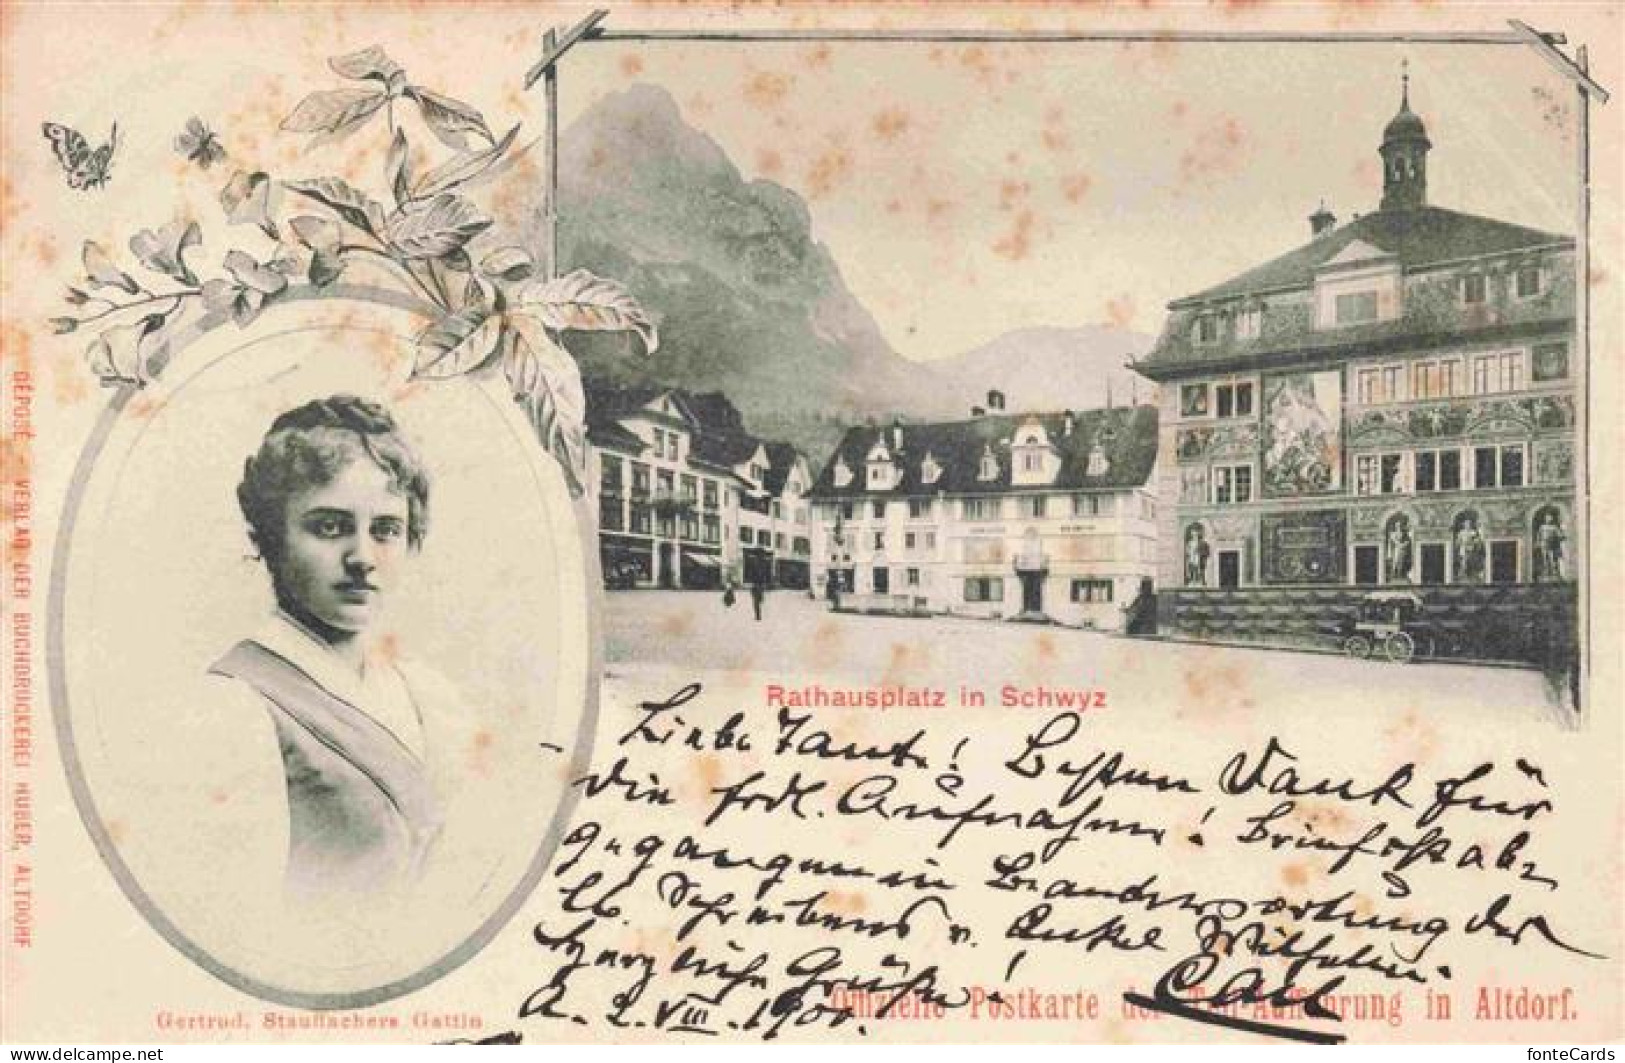 DÉPOSÉ. – VERLAG DER BUCHDRUCKEREI HUBER, ALTDORF
Rathausplatz in Schwyz
Liebe Tante! Besten Dank für
die frdl. Aufnahme! Brief ist ab-
gegangen in Beantwortung des
lb. Schreibens v. Onkel Wilhelm.
Herzliche Grüße!
A. 2. VIII. 1900. Carl
Gertrud, Stauffachers Gattin
Offizielle Postkarte der Tell-Aufführung in Altdorf.
https://www.delcampe.net
fonteCards